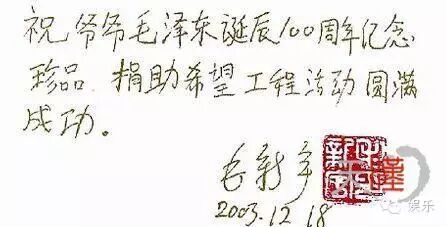 祝爷爷毛泽东诞辰100周年纪念
珍品 捐助希望工程活动圆满
成功。
毛新宇
2003.12.18
娱乐